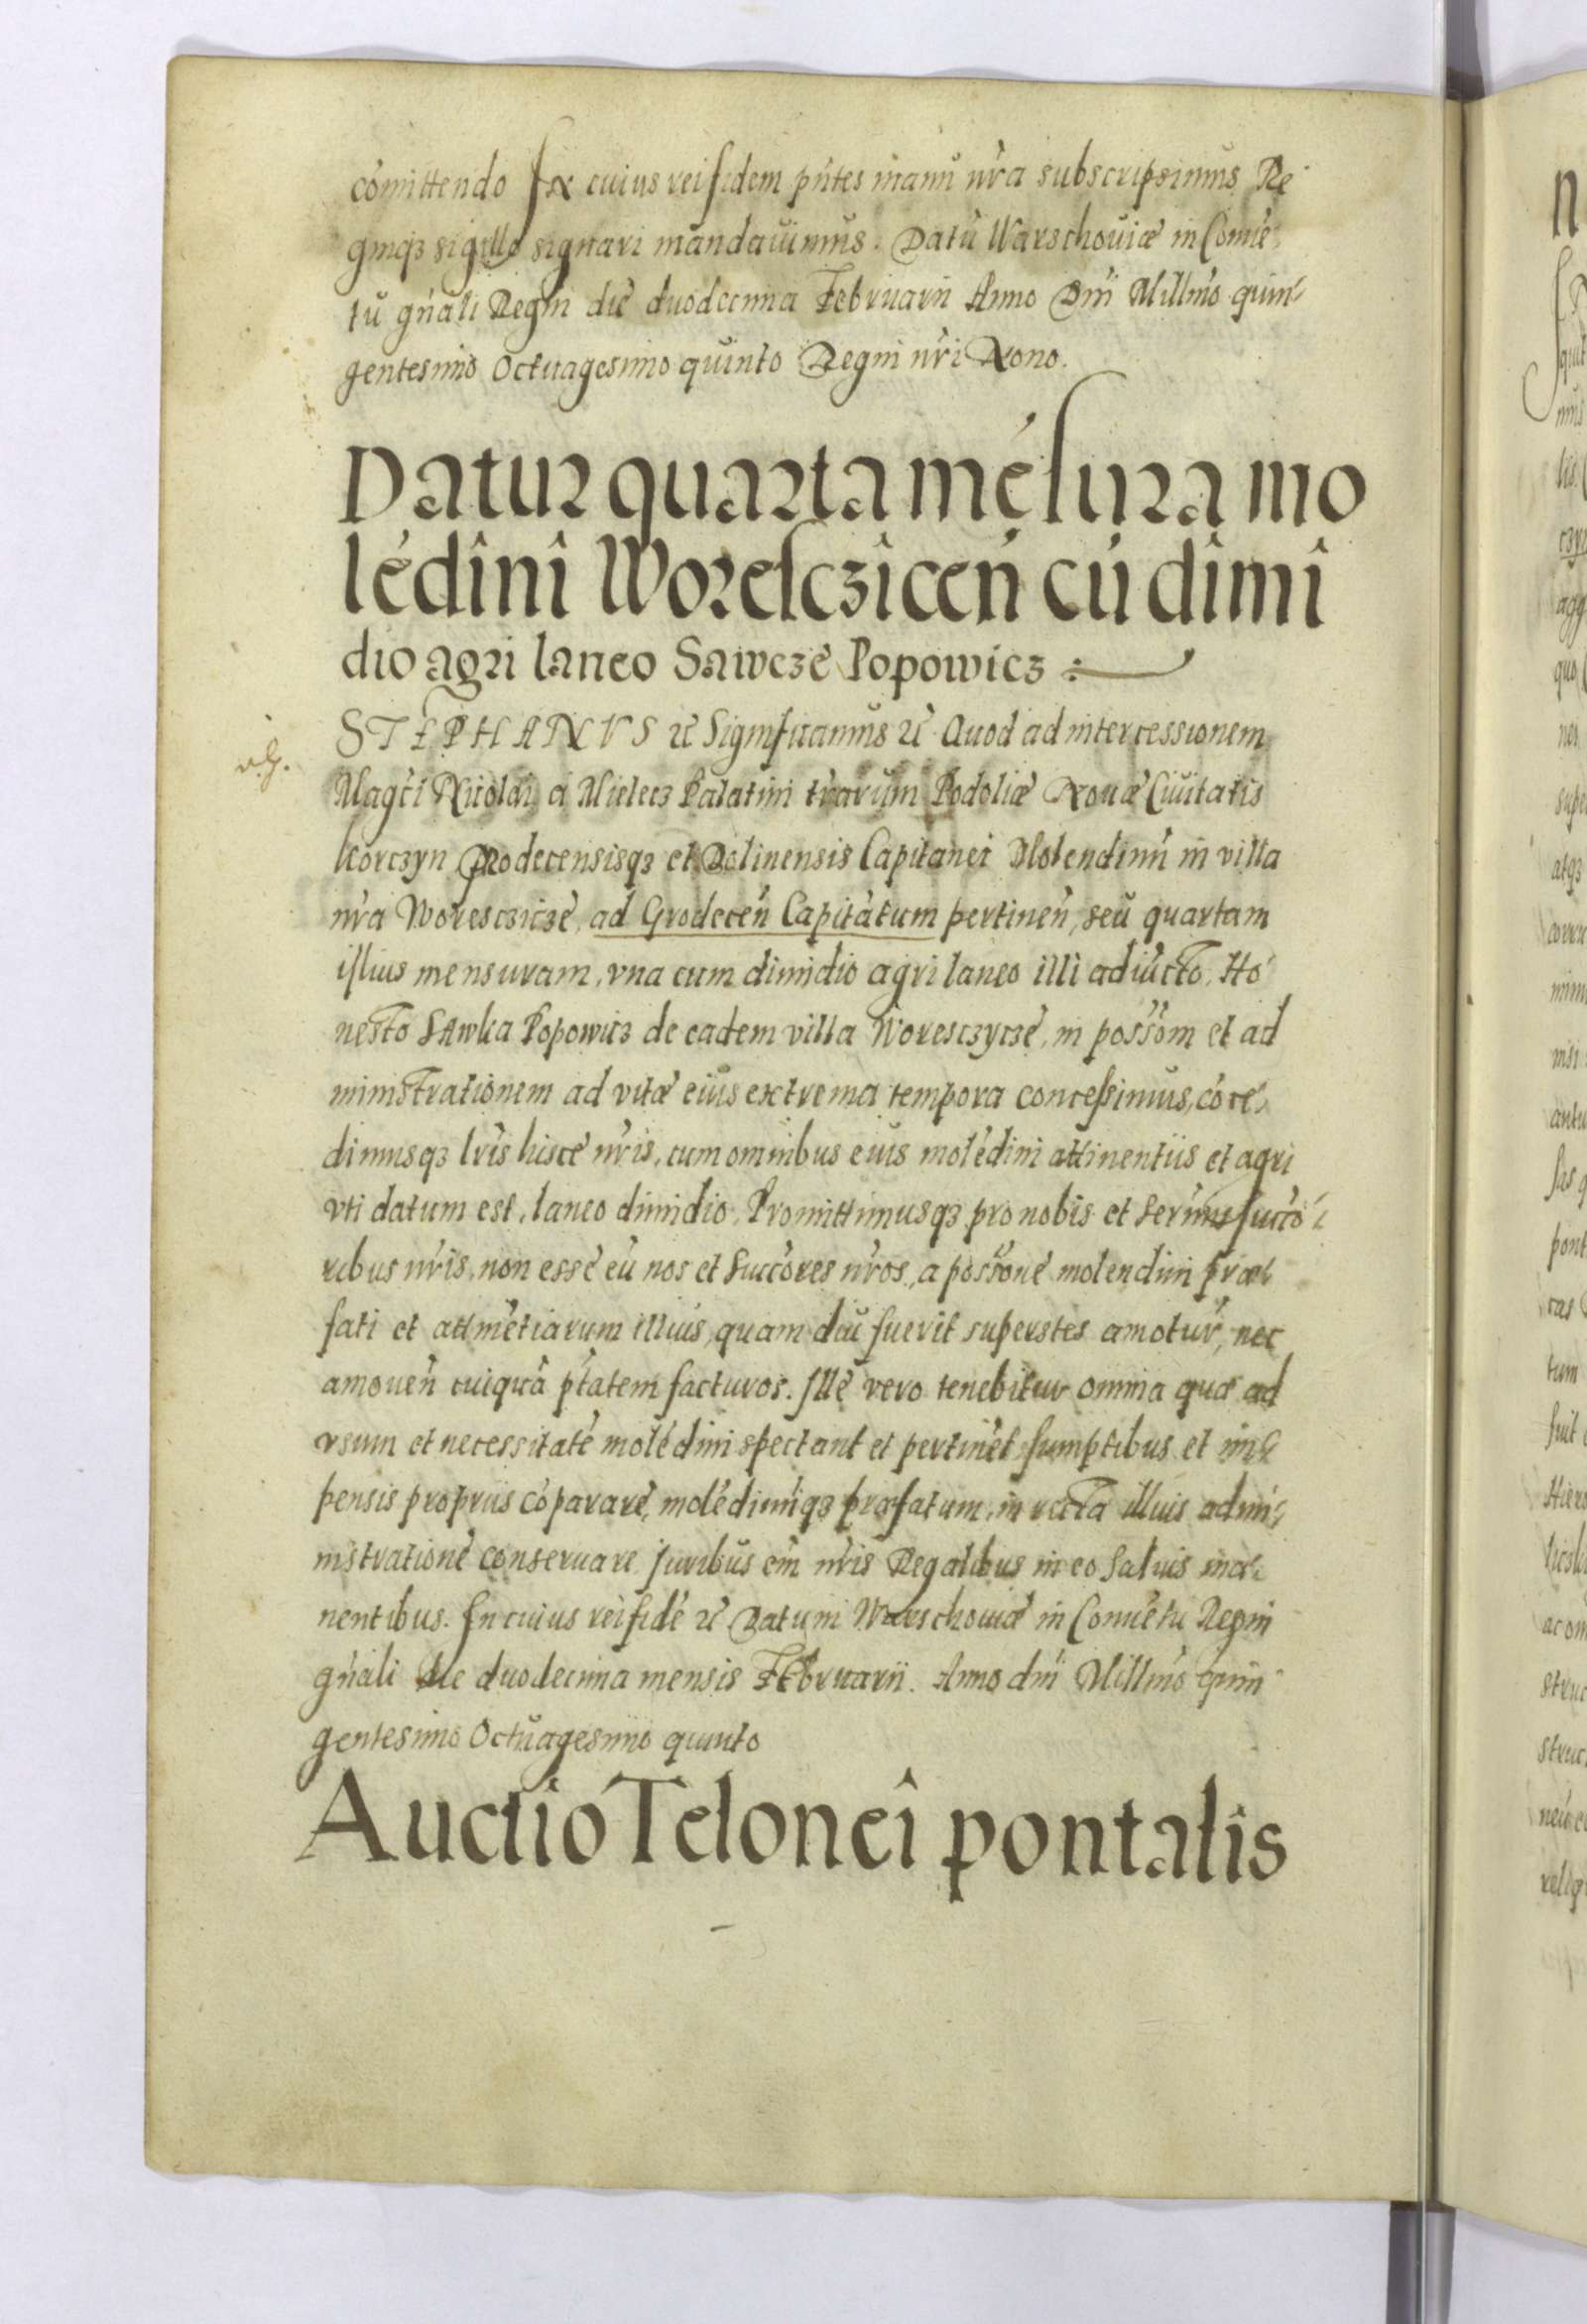 cómittendo In cuius rei fidem pñtes manũ nr̃a subscripsimus Re
gniqꝫ sigillo signari mandauimus. Datũ Warschouiæ in Conue
tũ gñali Regni die duodecima Februarii Anno Dñi Millm̃o quin
gentesimo Octuagesimo quinto Regni nr̃i Nono.
Datur quarta mẽsura mo
lẽdini Woresczicen̄ cũ dimi
dio agri laneo Sawcze Popowicz
STEPHANUS ꝛc Significamus ꝛc Quod ad intercessionem
Magc̃i Nicolai a Mielecz Palatini tr̃arum Podoliæ Nouæ Ciuitatis
Korczyn Grodecensisqꝫ et Dolinensis Capitanei Molendinũ in villa
nr̃a Woresczicze, ad Grodecen̄ Capitatum pertinen̄, seu quartam
illius mensuram, vna cum dimidio agri laneo illi adiũcto, Ho
nesto Sawka Popowicz de eadem villa Woresczycze, in possõm et ad
ministrationem ad vitæ eius extrema tempora concessimus, cõce
dimusqꝫ lr̃is hisce nr̃is, cum omnibus eius molẽdini attinentiis et agri
vti datum est, laneo dimidio. Promittimusqꝫ pro nobis et Serm̃is succõ
ribus nr̃is, non esse eũ nos et Succõres nr̃os, a possõne molendini præ
fati et attinẽtiarum illius, quam diu fuerit superstes amotur̃, nec
amouen̄ cuiquã ptãtem facturos. Ille vero tenebitur omnia quæ ad
vsum et necessitatẽ molẽdini spectant et pertinẽt sumptibus et im
pensis propriis cõparare, molẽdinũqꝫ præfatum, in recta illius admi
nistrationẽ conseruare Iuribus em̃ nr̃is Regalibus in eo saluis ma
nentibus. In cuius rei fidẽ ꝛc Datum Warschouiæ in Conuẽtu Regni
gñali die duodecima mensis Februarii. Anno dñi Millm̃o quin
gentesimo Octuagesimo quinto
Auctio Telonei pontalis